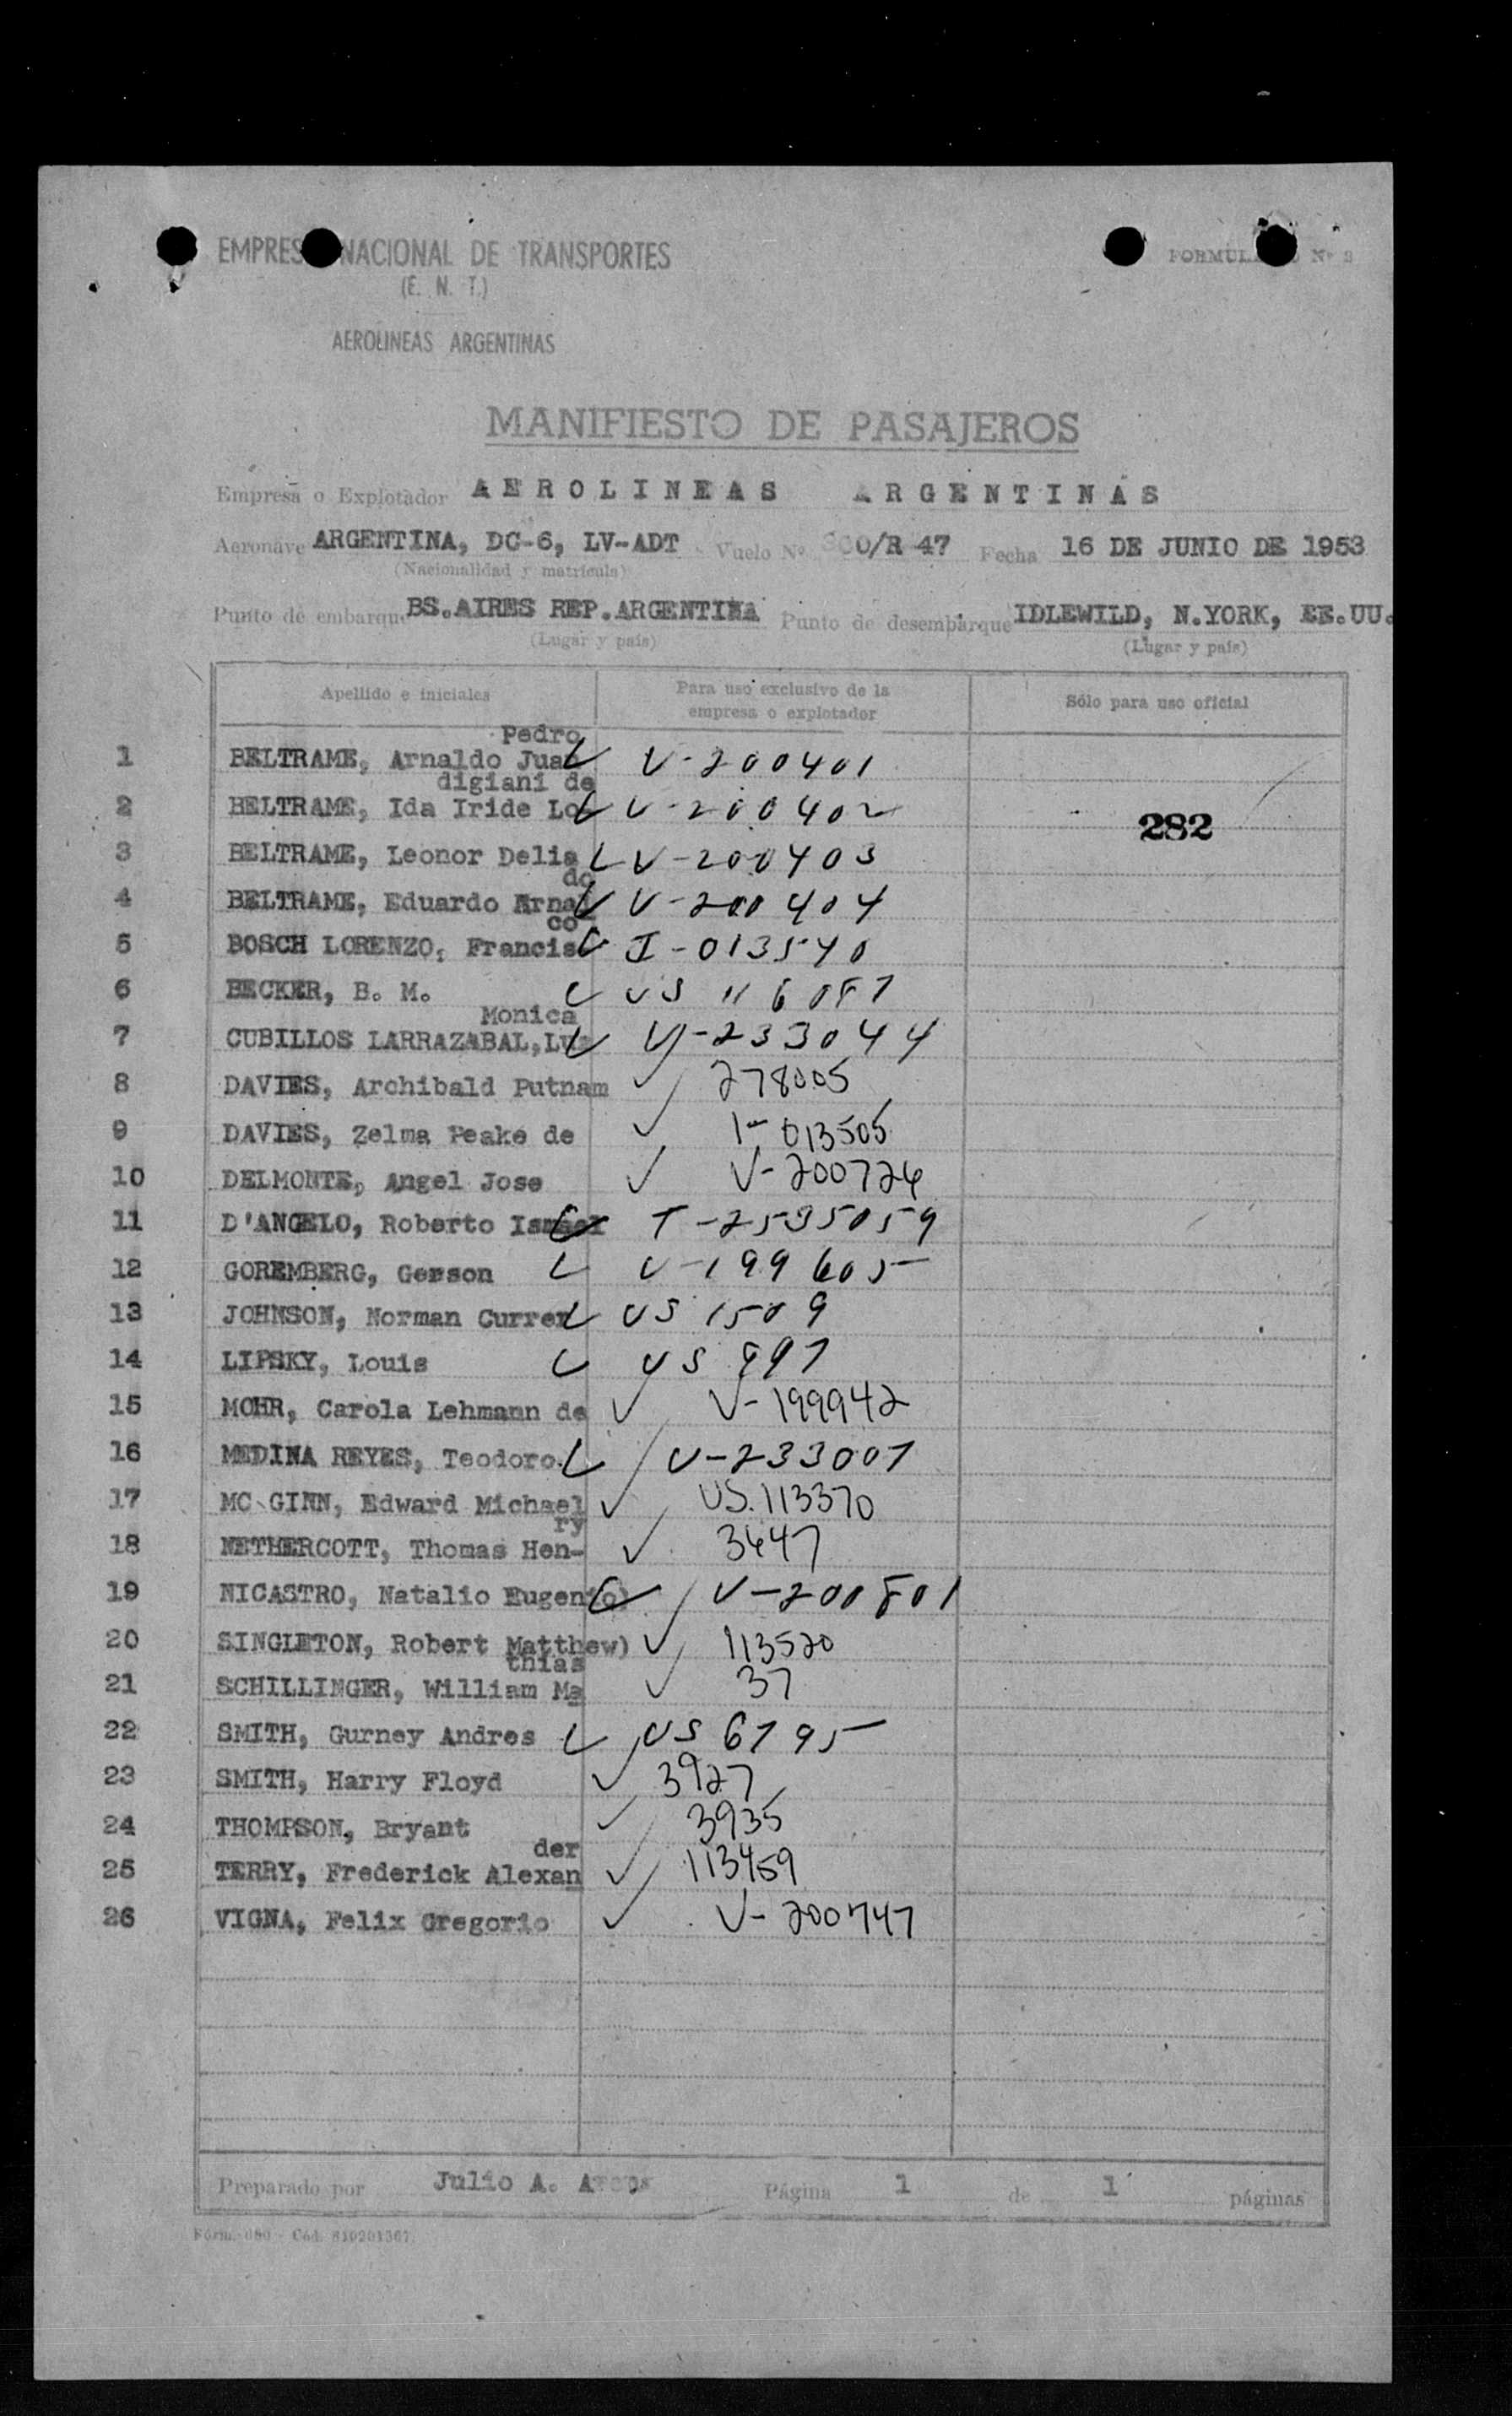 EMPRES NACIONAL DE TRANSPORTES
(E. N. T.)
AEROLINEAS ARGENTINAS
MANIFIESTO DE PASAJEROS
Empresa o Explotador AEROLINEAS ARGENTINAS
Aeronave ARGENTINA, DC-6, LV-ADT Vuelo Nº /R 47 Fecha 16 DE JUNIO DE 1953
(Nacionalidad y matrícula)
Punto de embarque BS.AIRES REP.ARGENTINA Punto de desembarque IDLEWILD, N.YORK, EE.UU.
(Lugar y país) (Lugar y país)
Apellido e iniciales Para uso exclusivo de la empresa o explotador Sólo para uso oficial
Pedro
1 BELTRAME, Arnaldo Juan V-200401
digiani de
2 BELTRAME, Ida Iride Lo V-200402
282
3 BELTRAME, Leonor Delia V-200403
do
4 BELTRAME, Eduardo Arnal V-200404
co
5 BOSCH LORENZO, Francis I-013540
6 BECKER, B. M. US 116087
Monica
7 CUBILLOS LARRAZABAL, V-233044
8 DAVIES, Archibald Putnam 278005
9 DAVIES, Zelma Peake de I-013505
10 DELMONTE, Angel Jose V-200726
11 D'ANGELO, Roberto Ismael T-2535059
12 GOREMBERG, Gerson V-199605
13 JOHNSON, Norman Curren US 1509
14 LIPSKY, Louis US
15 MOHR, Carola Lehmann de V-199942
16 MEDINA REYES, Teodoro. V-233007
17 MC GINN, Edward Michael US.113370
ry
18 NETHERCOTT, Thomas Hen- 3647
19 NICASTRO, Natalio Eugenio) V-200801
20 SINGLETON, Robert Matthew) 113520
thias
21 SCHILLINGER, William Ma 37
22 SMITH, Gurney Andres US 6795
23 SMITH, Harry Floyd 3927
24 THOMPSON, Bryant 3935
der
25 TERRY, Frederick Alexan 113459
26 VIGNA, Felix Gregorio V-200747
Preparado por Julio A. Página 1 de 1 páginas